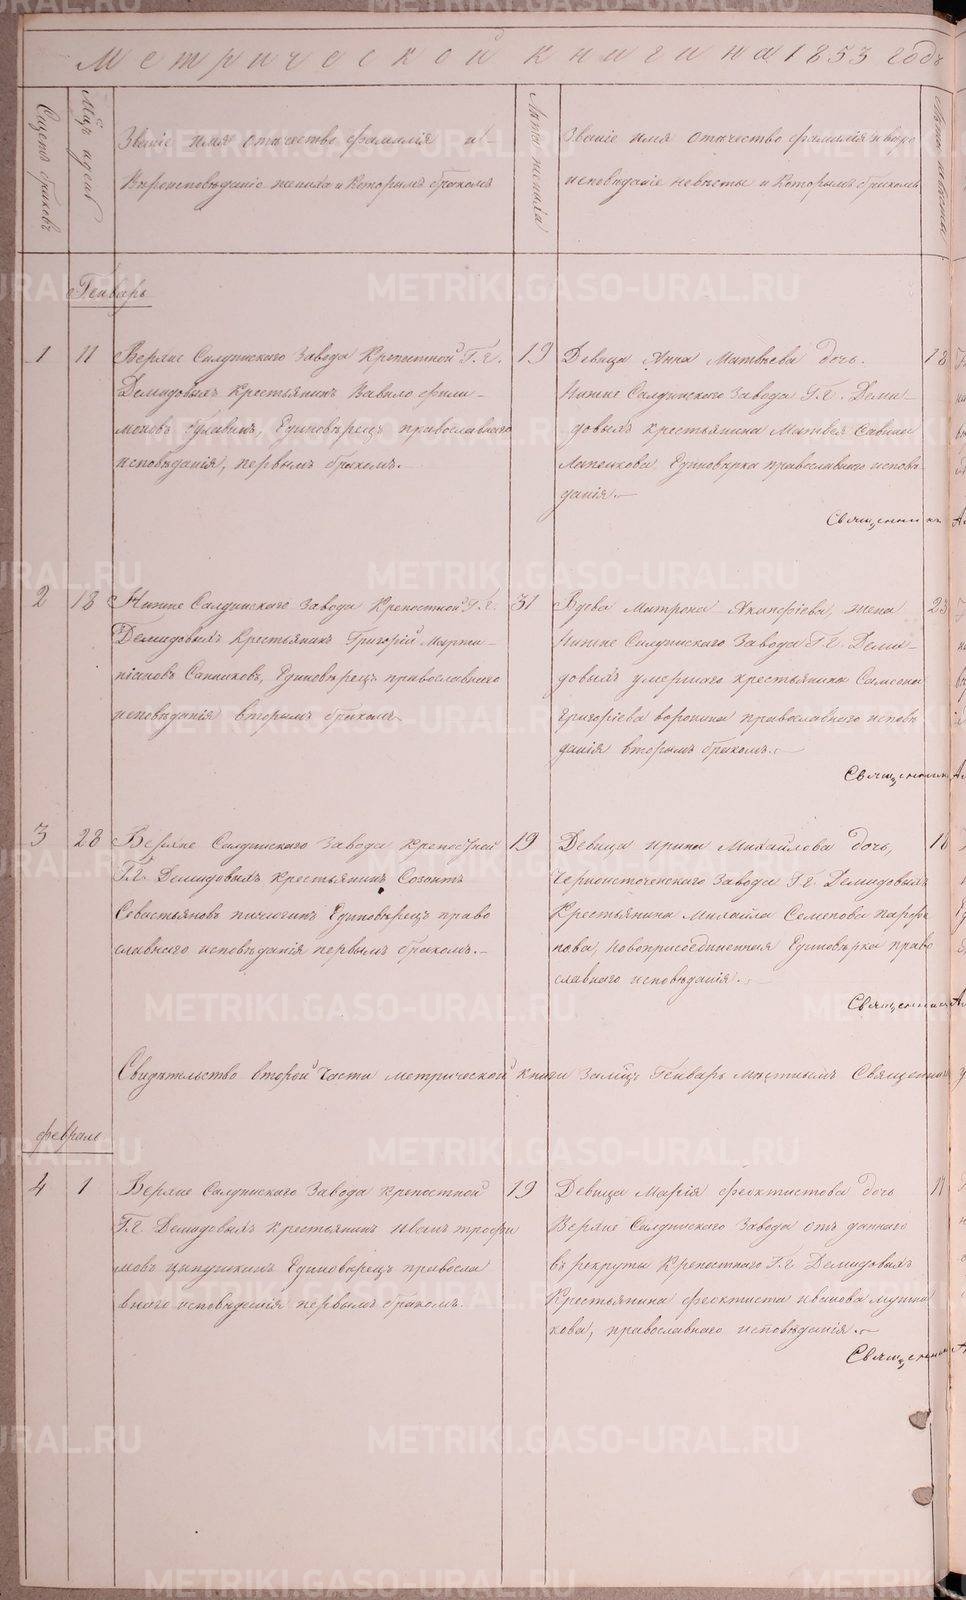 Метрической книги на 1853 годъ
Счетъ браковъ
Мѣсяцъ и день
Званіе имя отечество фамилія и
вѣроисповѣданіе жениха и которымъ бракомъ
Лѣта жениха
Званіе имя отечество фамилія и вѣро
исповѣданіе невѣсты и которымъ бракомъ
Лѣта невѣсты
Генварь
1 11 Верхне Салдинскаго Завода Крепостной Г.г.
Демидовыхъ Крестьянинъ Вавило Фили-
моновъ Единовѣрецъ православнаго
исповѣданія, первымъ бракомъ.
19
Девица Анна Матвѣева дочь.
Нижне Салдинскаго Завода Г.г. Деми-
довыхъ крестьянина Матвея Савина
Лапенкова Единовѣрка православнаго исповѣ-
данія.
18
Священникъ
2 18 Нижне Салдинскаго Завода Крепостной Г.г.
Демидовыхъ Крестьянинъ Григорій Марки-
ніановъ Санников, Единовѣрецъ православнаго
исповѣданія вторымъ бракомъ
31
Вдова Матрона жена
Нижне Салдинскаго Завода Г.г. Деми-
довыхъ умершаго крестьянина Самсона
Григоріева Воронина православнаго исповѣ
данія вторымъ бракомъ.
23
Священник
3 28 Верхне Салдинскаго Завода Крепостной
Г.г. Демидовыхъ Крестьянинъ Созонтъ
Севастьяновъ Пичугинъ Единовѣрецъ право
славнаго исповѣданія первымъ бракомъ.
19
Девица Ирина Михайлова дочь,
Черноисточенскаго Завода Г.г. Демидовыхъ
Крестьянина Михайла Семенова Парфе
нова, новоприсоединенная Единовѣрка право
славнаго исповѣданія.
18
Священник
Свидѣтельство второй части метрической книги за мѣсяцъ Генварь Мѣстнымъ Священни
Февраль
4 1 Верхне Салдинскаго Завода Крепостной
Г.г. Демидовыхъ Крестьянинъ Иванъ Трофи
мовъ Единовѣрецъ правосла
внаго исповѣданія первымъ бракомъ.
19
Девица Марія Феоктистова дочь
Верхне Салдинскаго Завода отъ даннаго
въ рекруты Крепостнаго Г.г. Демидовыхъ
Крестьянина Феоктиста Иванова
православнаго исповѣданія.
Священник
METRIKI.GASO-URAL.RU